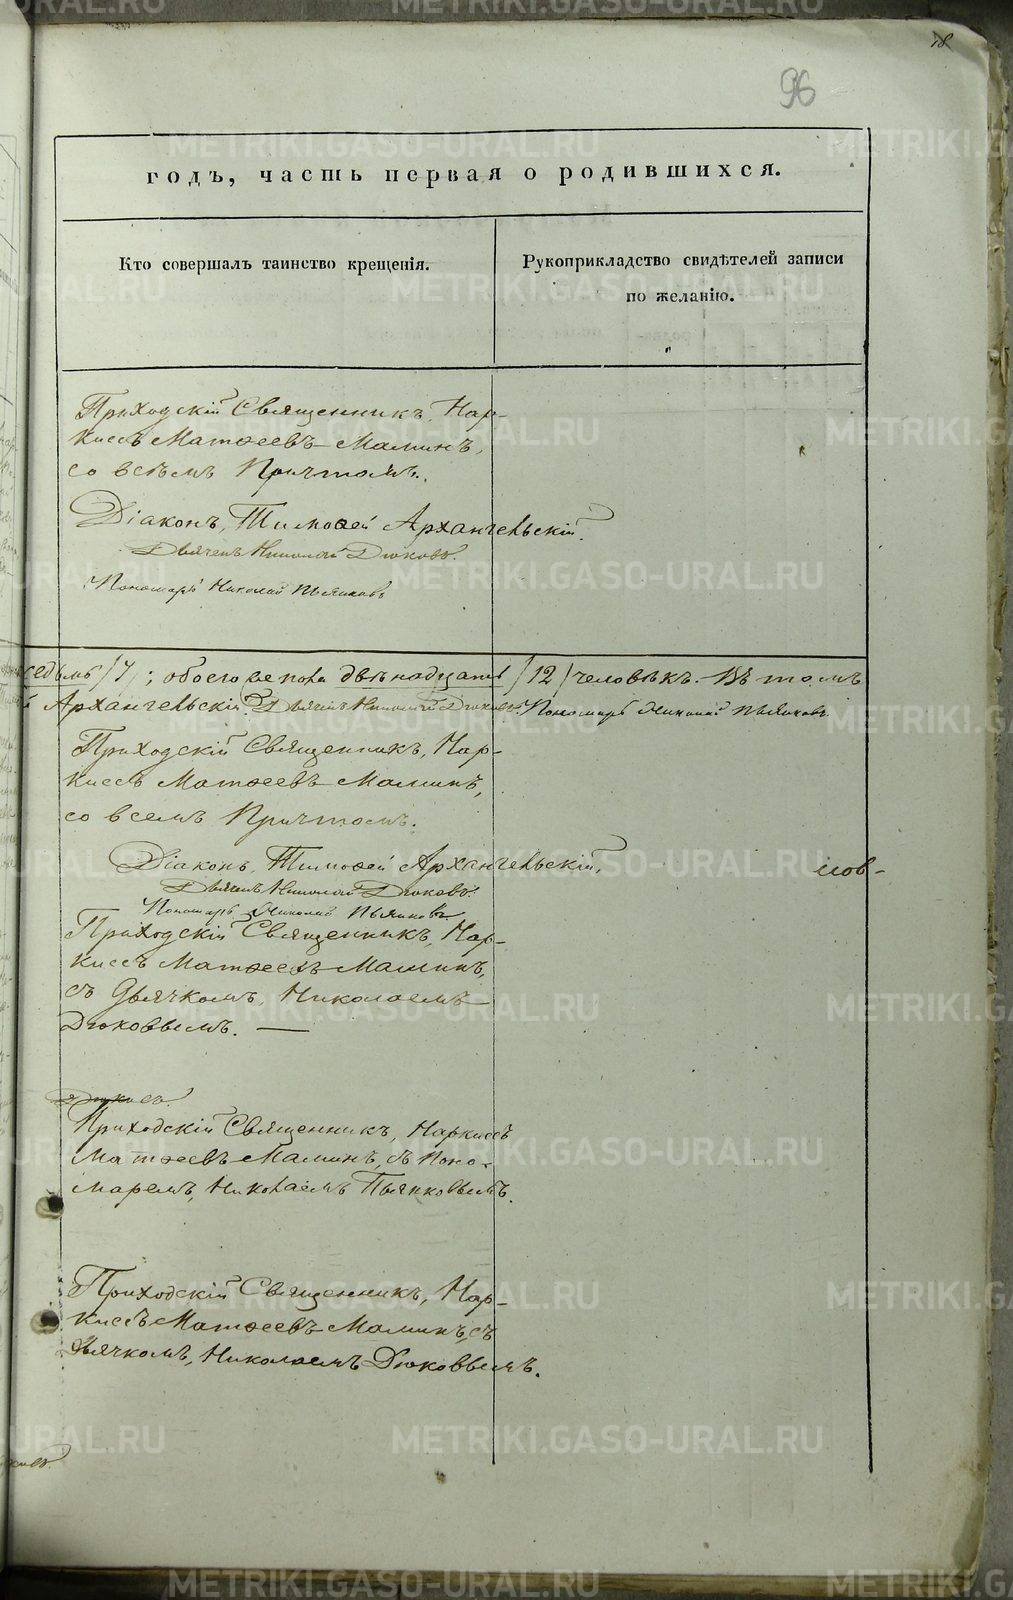 18
96
годъ, часть первая о родившихся.
Кто совершалъ таинство крещенія.
Рукоприкладство свидѣтелей записи
по желанію.
Приходскій Священникъ, Нар-
киссъ Матѳеевъ Маминъ,
со всѣмъ Причтомъ.
Діаконъ, Тимоѳей Архангельскій.
Дьячекъ Николай Дюковъ.
Пономарь Николай Пьянковъ
седмь /7/; обоего же пола двѣнадцать /12/ человѣкъ. Въ томъ
й Архангельскій. Дьячекъ Николай Дюковъ. Пономарь Николай Пьянковъ.
Приходскій Священникъ, Нар-
киссъ Матѳеевъ Маминъ,
со всемъ Причтомъ.
Діаконъ, Тимоѳей Архангельскій,
Дьячекъ Николай Дюковъ.
Пономарь Николай Пьянковъ
Приходскій Священникъ, Нар-
киссъ Матѳеевъ Маминъ,
съ Дьячкомъ, Николаемъ
Дюковымъ. —
Дюковъ.
Приходскій Священникъ, Наркиссъ
Матѳеевъ Маминъ, съ Поно-
маремъ, Николаемъ Пьянковымъ.
Приходскій Священникъ, Нар-
киссъ Матѳеевъ Маминъ, съ
Дьячкомъ, Николаемъ Дюковымъ.
METRIKI.GASO-URAL.RU